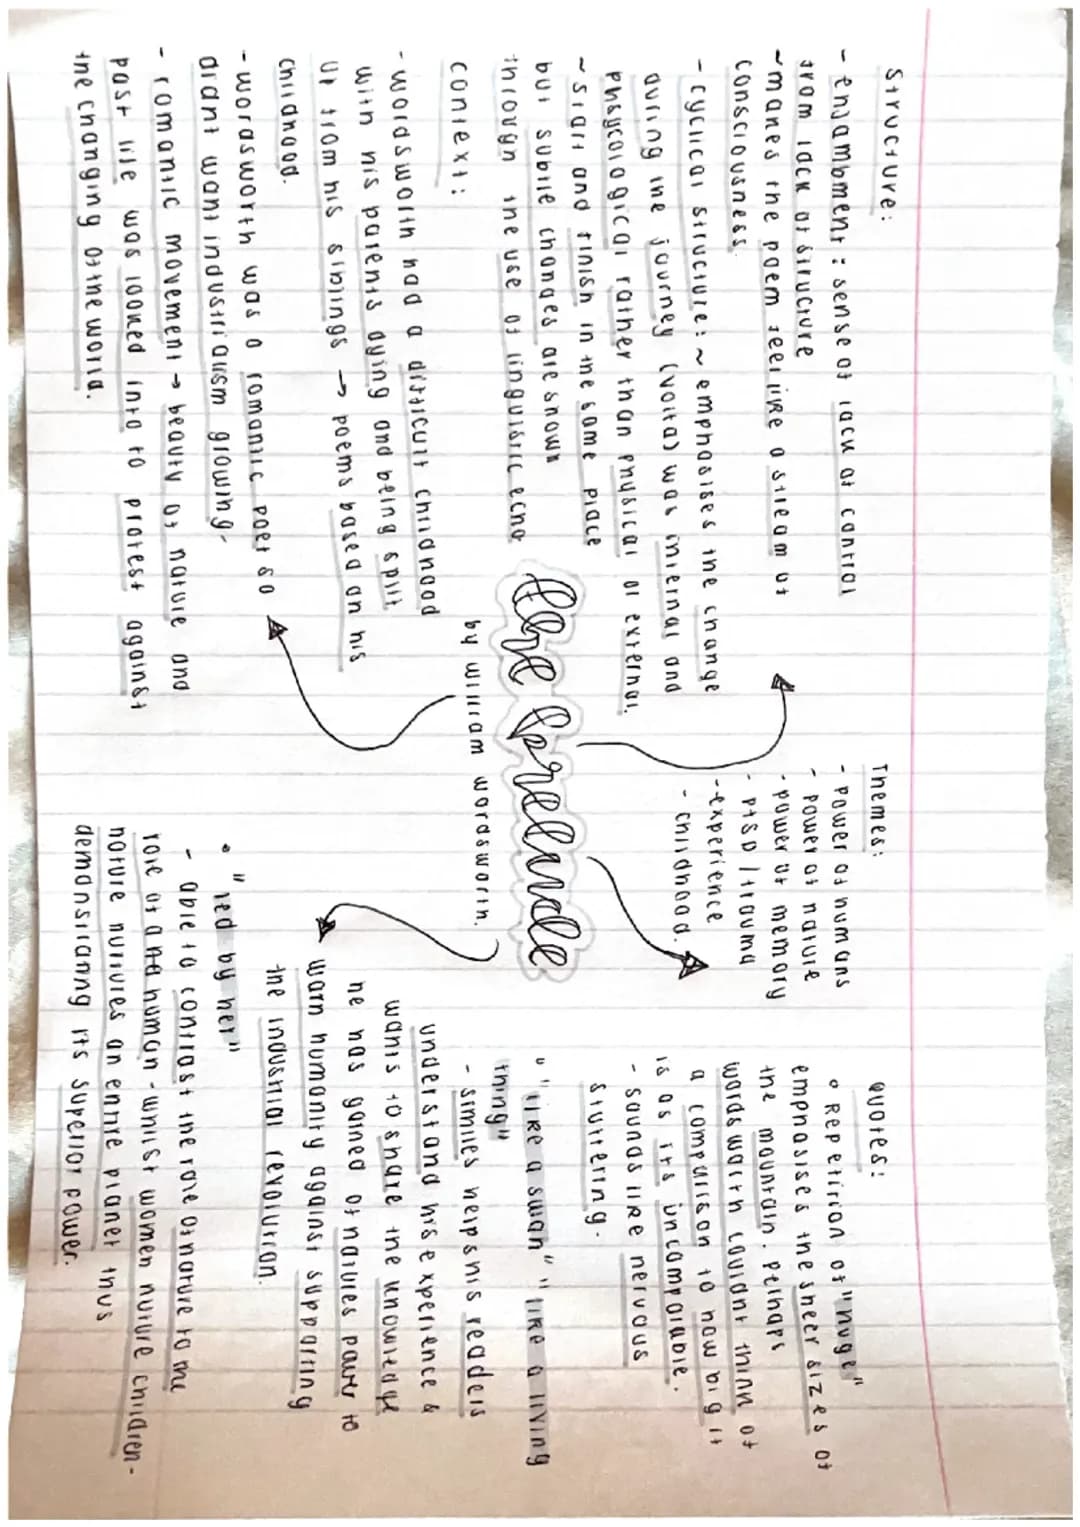 Structure:
- Enjambment: sense of lack of control
from lack of structure
~ makes the poem feel like a stream of
consciousness.
- cyclical structure: ~ emphasises the change
during the journey (volta) was internal and
phsycological rather than physical or external.
~ start and finish in the same place
but subtle changes are shown
through the use of linguistic echo
context:
- wordsworth had a difficult childhood
with his parents dying and being split
up from his siblings → poems based on his
childhood.
- wordsworth was a romantic poet so
didnt want industrialism growing.
- romantic movement → beauty of nature and
past life was looked into to protest against
the changing of the world.
The Prelude
by william wordsworth.
Themes:
- power of humans
- power of nature
- power of memory
- PTSD / trauma
- experience
- childhood.
quotes:
° Repetition of "huge"
emphasise the sheer sizes of
the mountain. perhaps
wordsworth couldnt think of
a comparison to how big it
is as its incomparable.
- sounds like nervous
stuttering.
° "like a swan" "like a living
thing"
- similes helps his readers
understand hise experience &
wants to share the knowledge
he has gained of natures power to
warn humanity against supporting
the industrial revolution.
• "led by her"
- able to contrast the role of nature to the
role of a human - whilst women nuture children -
nature nurtures an entire planet thus
demonstrating its superior power.